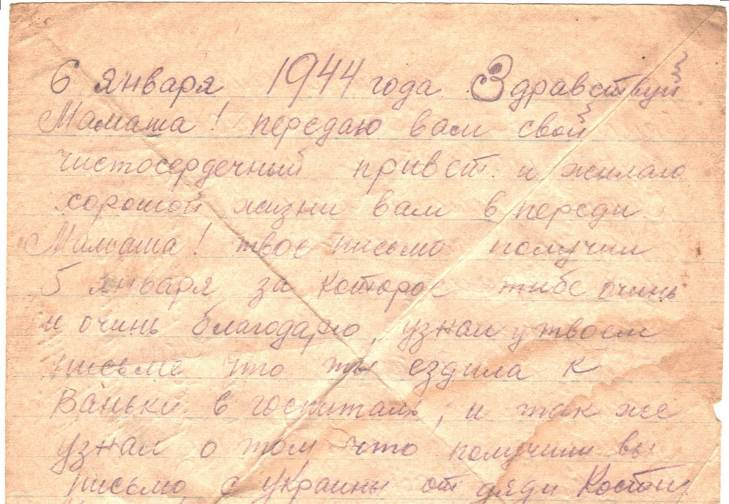 6 января 1944 года Здравствуй
Мамаша! передаю вам свой
чистосердечный привет. и жилаю
хорошой жизни вам в переди
Мамаша! твое письмо получил
5 января за которое тибе очинь
и очинь благодарю, узнал у твоем
письме что ты ездила к
Ваньки в госпиталь, и так же
узнал о том что получили вы
письмо с украины от дяди Косты